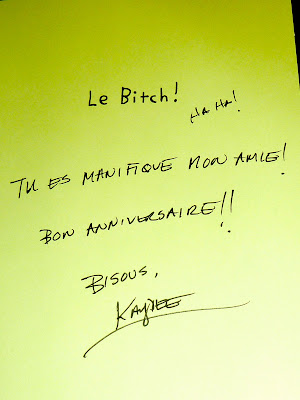 Le Bitch!
HA HA!
TU ES MANIFIQUE MON AMIE!
BON ANNIVERSAIRE!!
BISOUS,
KAYLEE